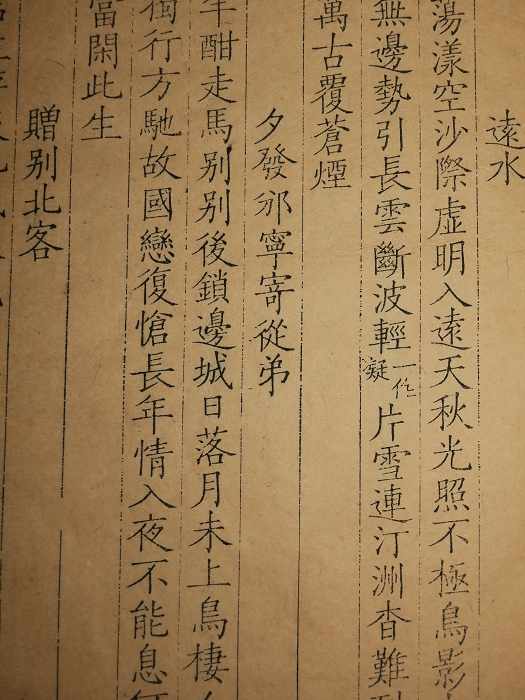 遠水
蕩漾空沙際虛明入遠天秋光照不極鳥影
無邊勢引長雲斷波輕一作凝片雪連汀洲杳難
萬古覆蒼煙
夕發邠寧寄從弟
半酣走馬别别後鎖邊城日落月未上鳥棲
獨行方馳故國戀復愴長年情入夜不能息
當閑此生
贈别北客